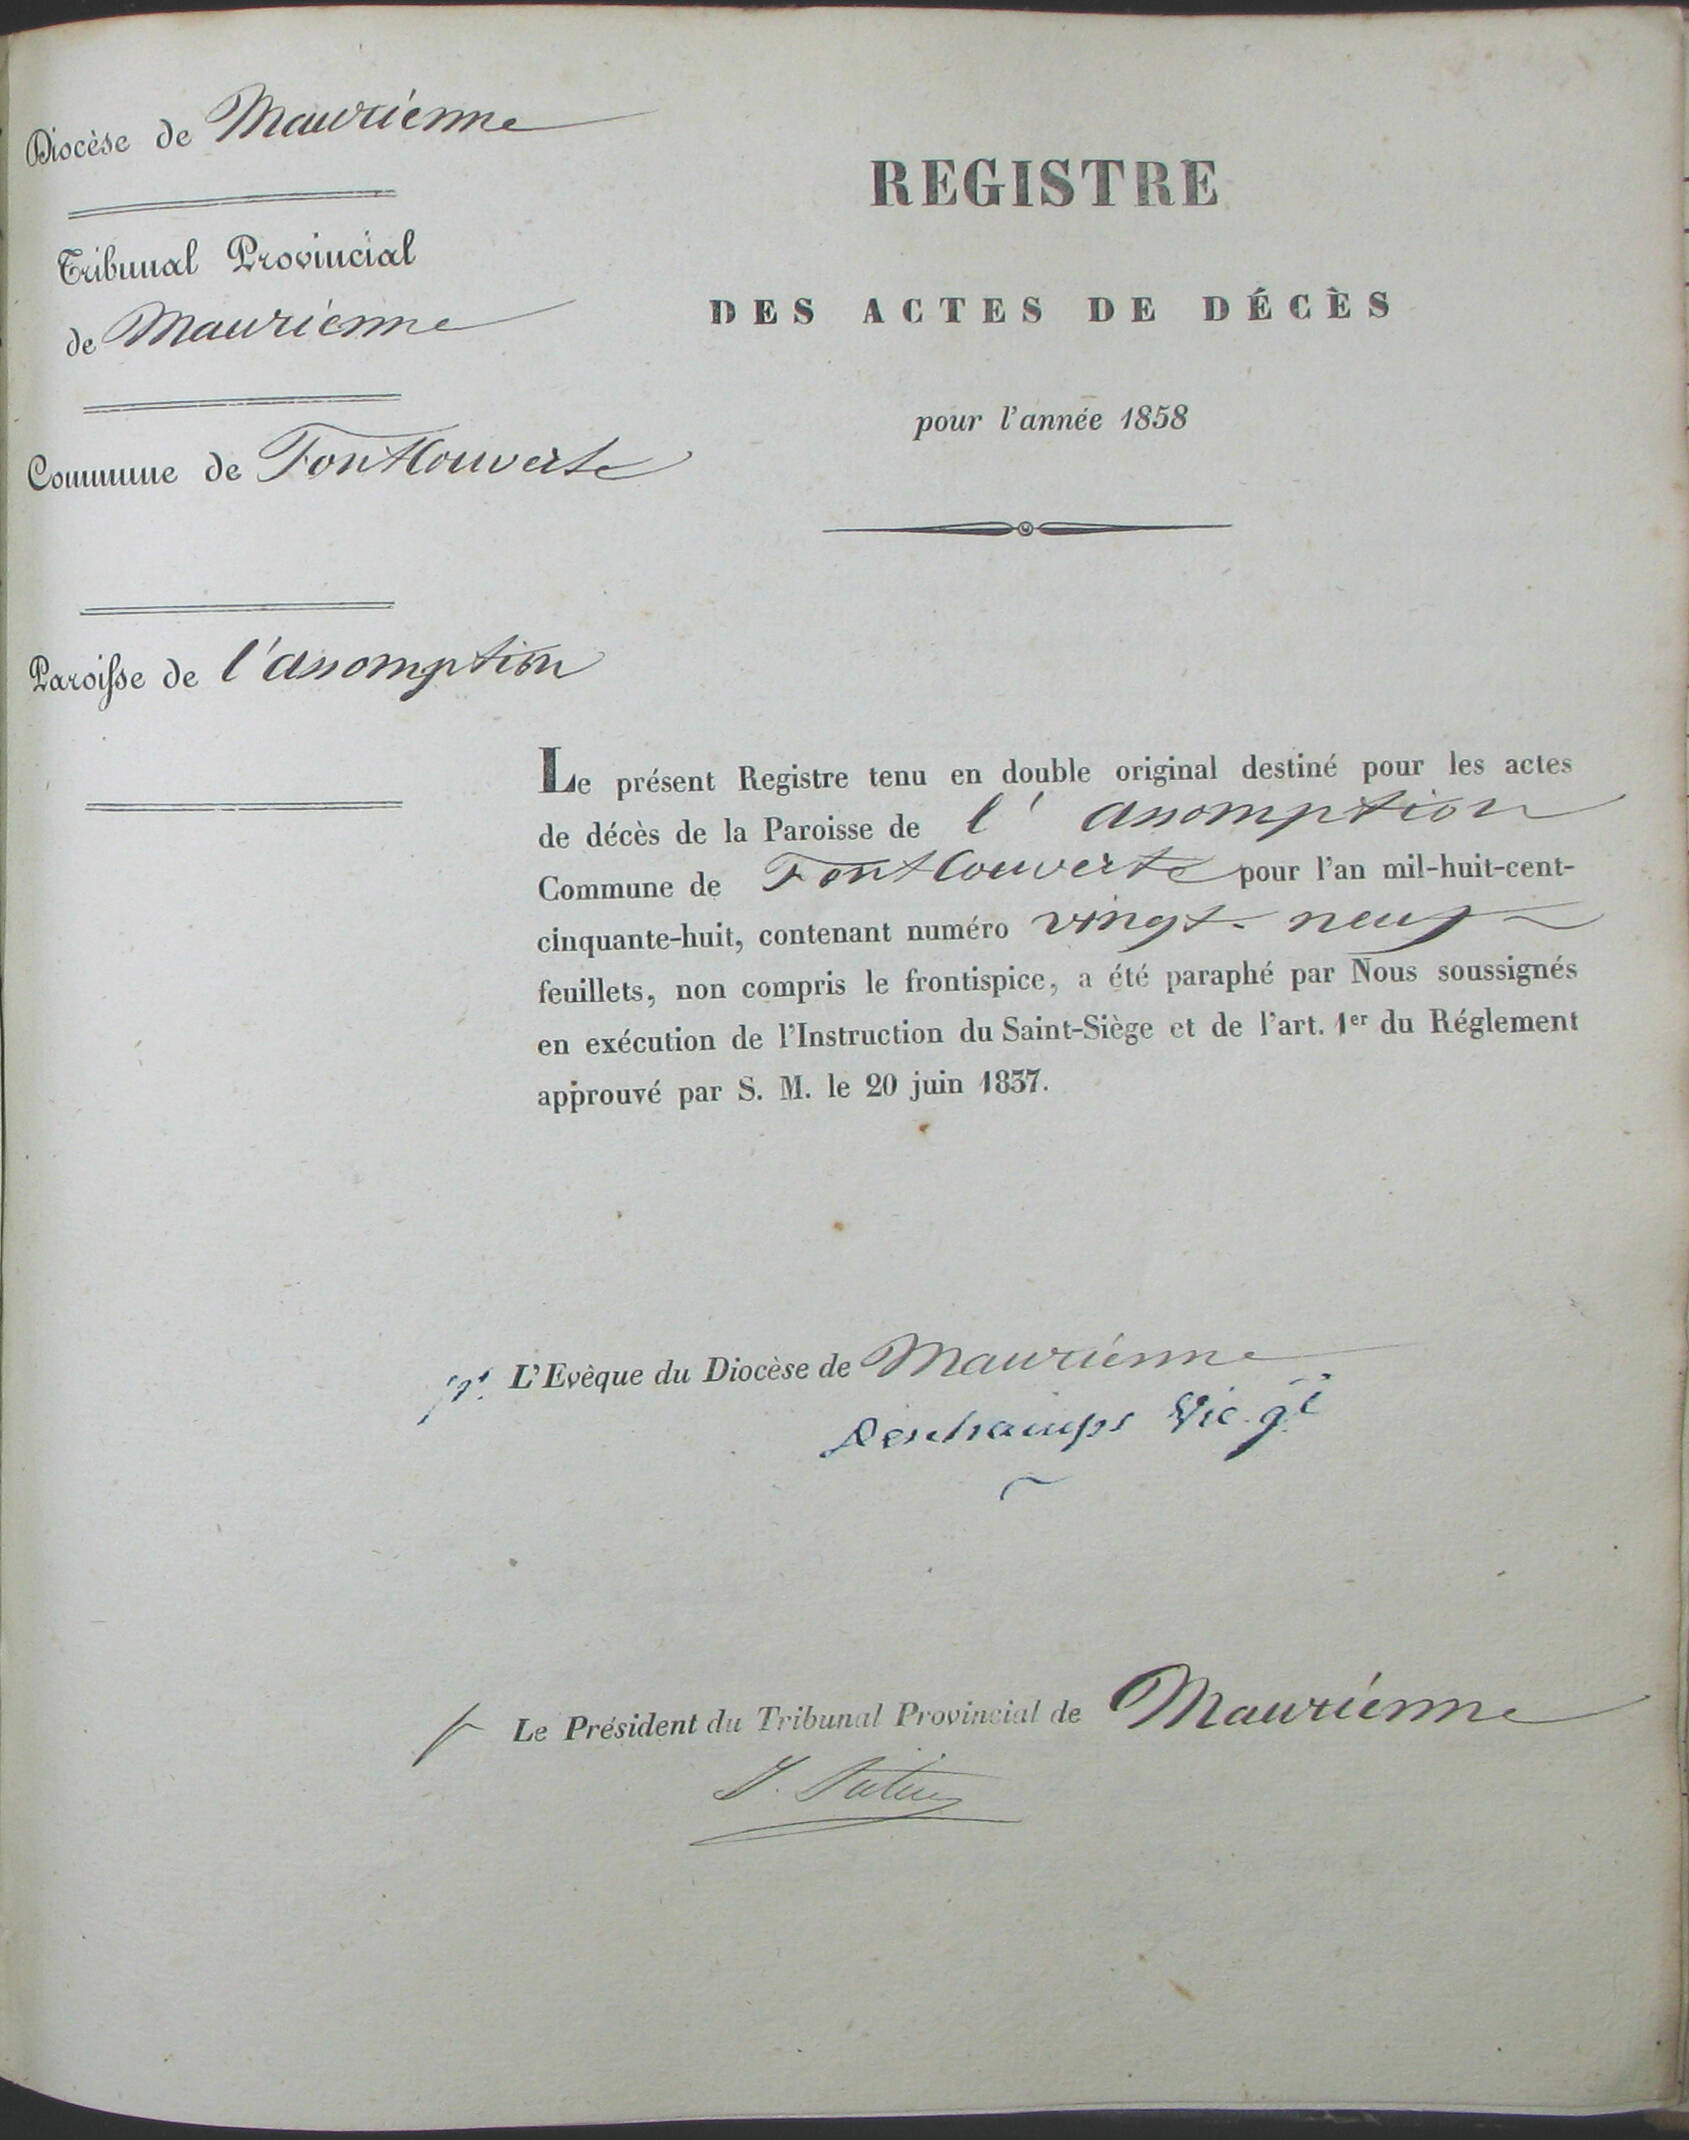 Diocèse de Maurienne
Tribunal Provincial
de Maurienne
Commune de Fontcouverte
Paroisse de l'assomption
REGISTRE
DES ACTES DE DÉCÈS
pour l'année 1858
Le présent Registre tenu en double original destiné pour les actes
de décès de la Paroisse de l'assomption
Commune de Fontcouverte pour l'an mil-huit-cent-
cinquante-huit, contenant numéro vingt-neuf
feuillets, non compris le frontispice, a été paraphé par Nous soussignés
en exécution de l'Instruction du Saint-Siège et de l'art. 1er du Réglement
approuvé par S. M. le 20 juin 1837.
pr. L'Evêque du Diocèse de Maurienne
Deschamps Vic. gl
Le Président du Tribunal Provincial de Maurienne